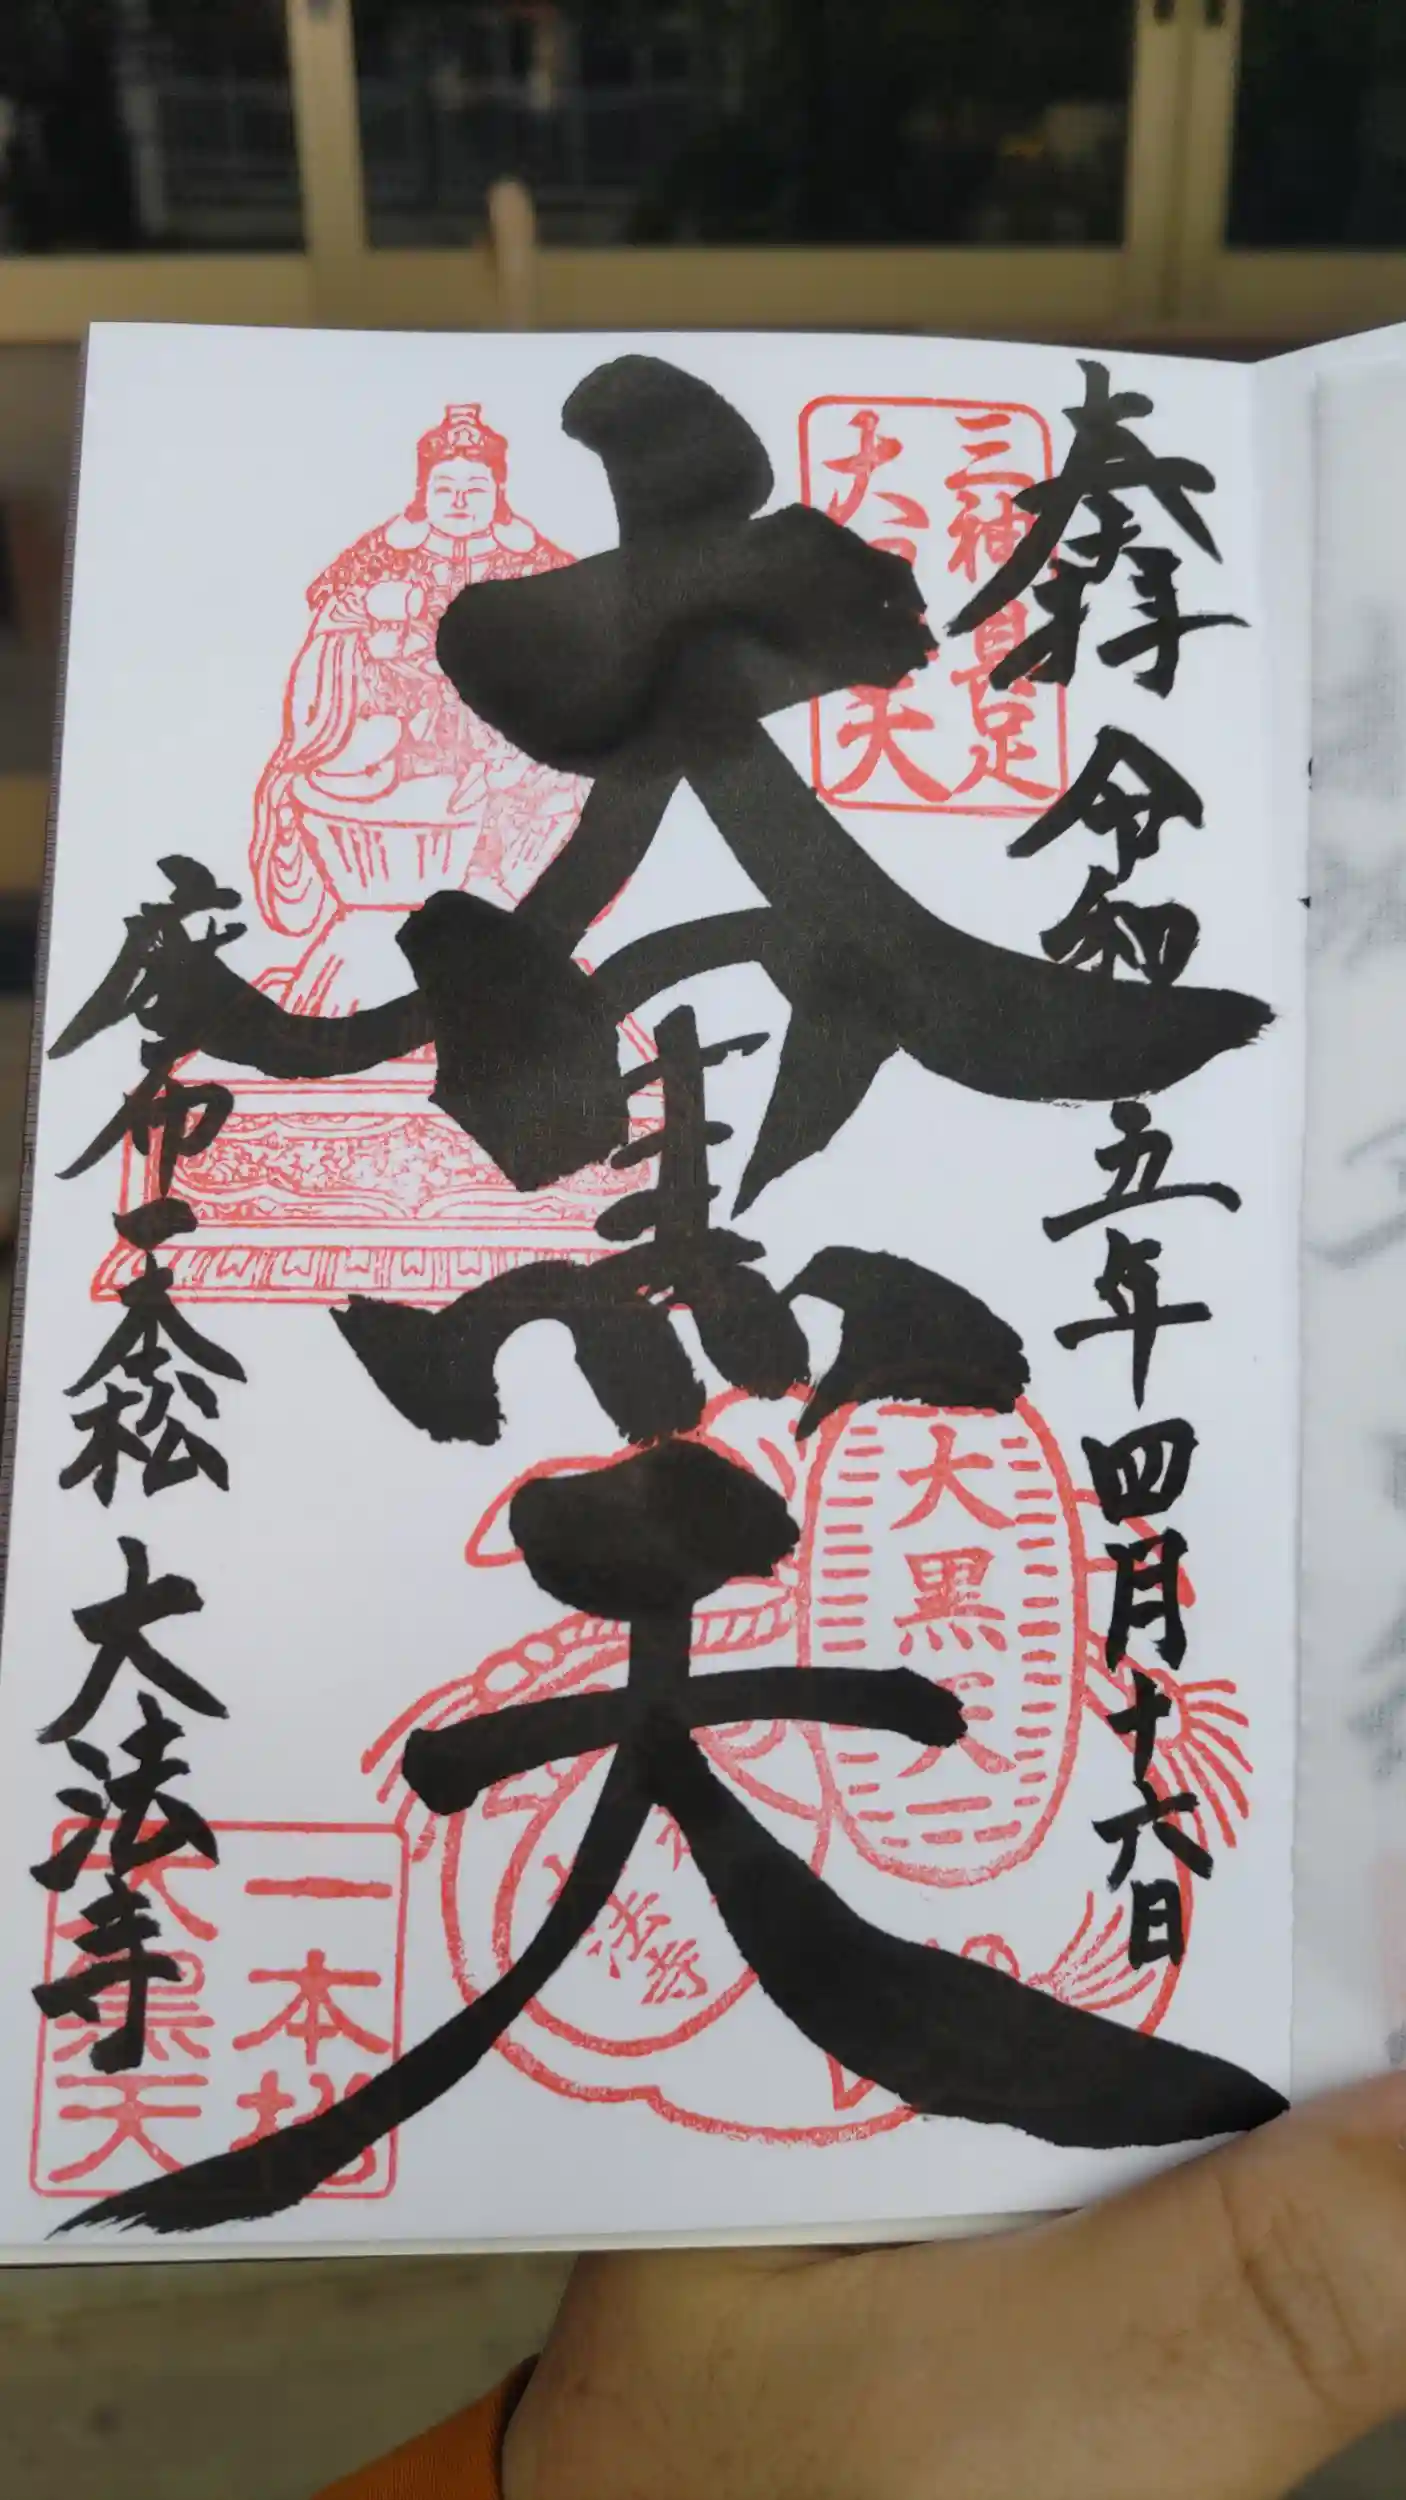 奉拝 令和五年四月十六日
三神具足
大黒天
大黒天
大黒天
法寺
麻布一本松 大法寺
一本松
大黒天